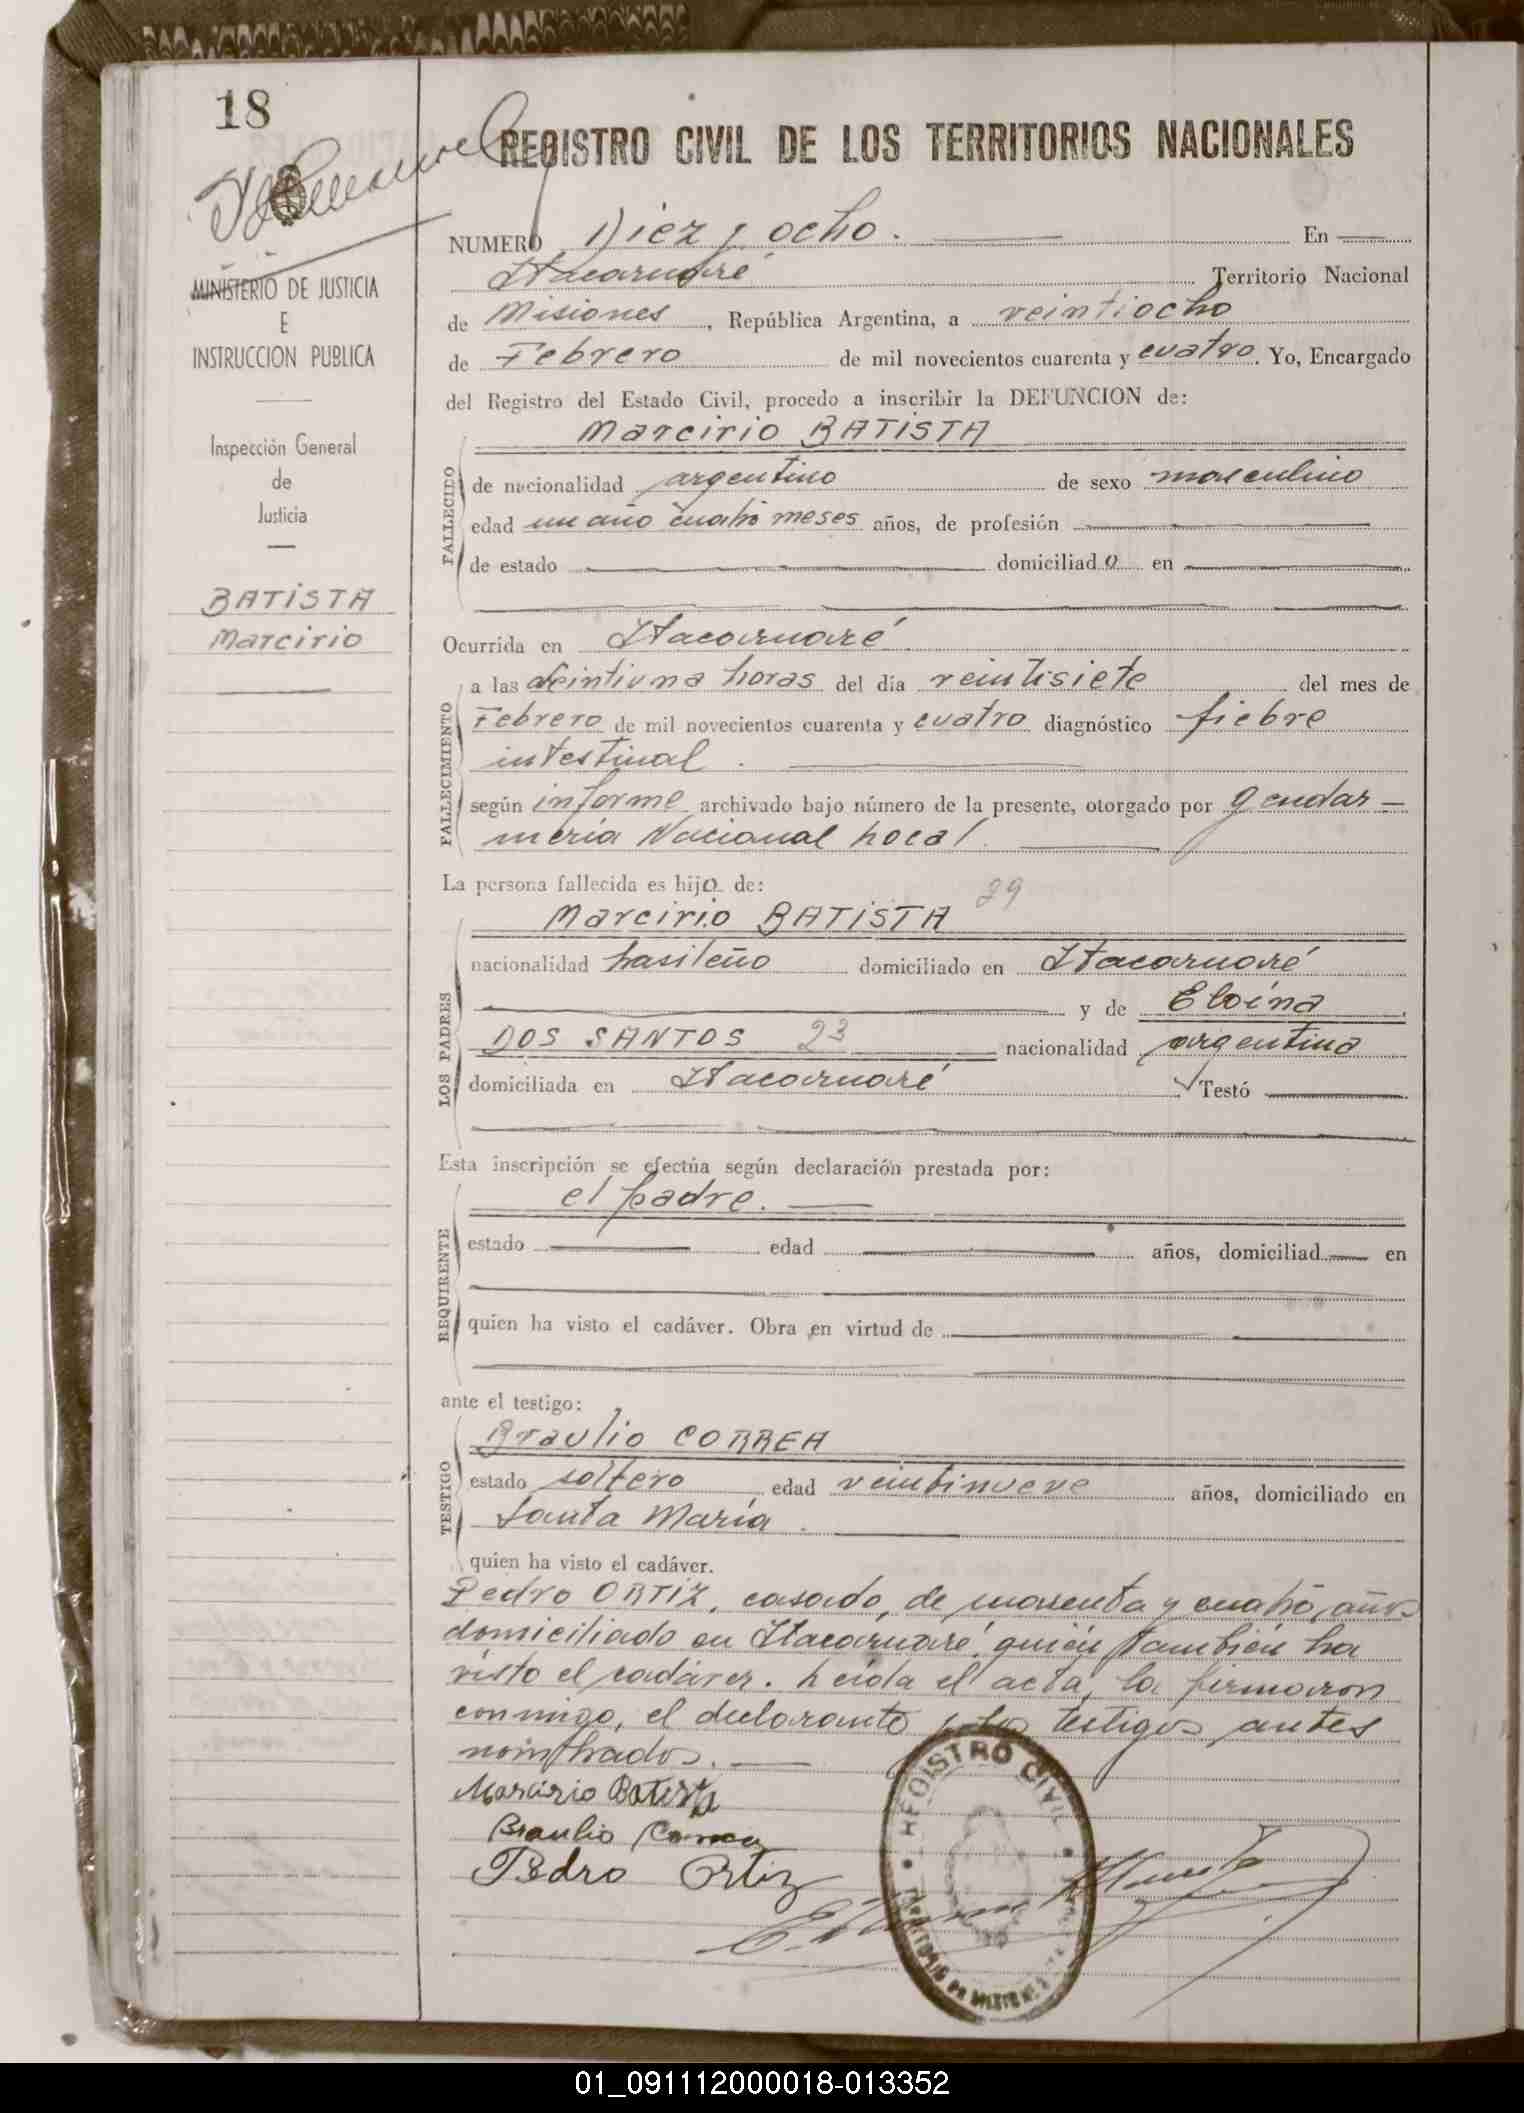 18
REGISTRO CIVIL DE LOS TERRITORIOS NACIONALES
NUMERO Diez y ocho. En
Itacaruaré Territorio Nacional
de Misiones, República Argentina, a veintiocho
de Febrero de mil novecientos cuarenta y cuatro. Yo, Encargado
del Registro del Estado Civil, procedo a inscribir la DEFUNCION de:
Marcirio BATISTA
FALLECIDO
de nacionalidad argentino de sexo masculino
edad un año cuatro meses años, de profesión
de estado domiciliado en
MINISTERIO DE JUSTICIA
E
INSTRUCCION PUBLICA
Inspección General
de
Justicia
BATISTA
Marcirio
Ocurrida en Itacaruaré
FALLECIMIENTO
a las veintiuna horas del día veintisiete del mes de
Febrero de mil novecientos cuarenta y cuatro diagnóstico fiebre
intestinal.
según informe archivado bajo número de la presente, otorgado por gendar-
mería Nacional Local.
La persona fallecida es hijo de:
Marcirio BATISTA 29
LOS PADRES
nacionalidad brasileño domiciliado en Itacaruaré
y de Eloína
DOS SANTOS 23 nacionalidad argentina
domiciliada en Itacaruaré Testó
Esta inscripción se efectúa según declaración prestada por:
el padre.
REQUIRENTE
estado edad años, domiciliad en
quien ha visto el cadáver. Obra en virtud de
ante el testigo:
Braulio CORREA
TESTIGO
estado soltero edad veintinueve años, domiciliado en
Santa María.
quien ha visto el cadáver.
Pedro ORTIZ, casado, de cuarenta y cuatro años
domiciliado en Itacaruaré, quien también ha
visto el cadáver. Leída el acta, la firmaron
conmigo, el declarante y los testigos antes
nombrados.
Marcirio Batista
Braulio Correa
Pedro Ortiz
REGISTRO CIVIL
TERRITORIO DE MISIONES
01_091112000018-013352